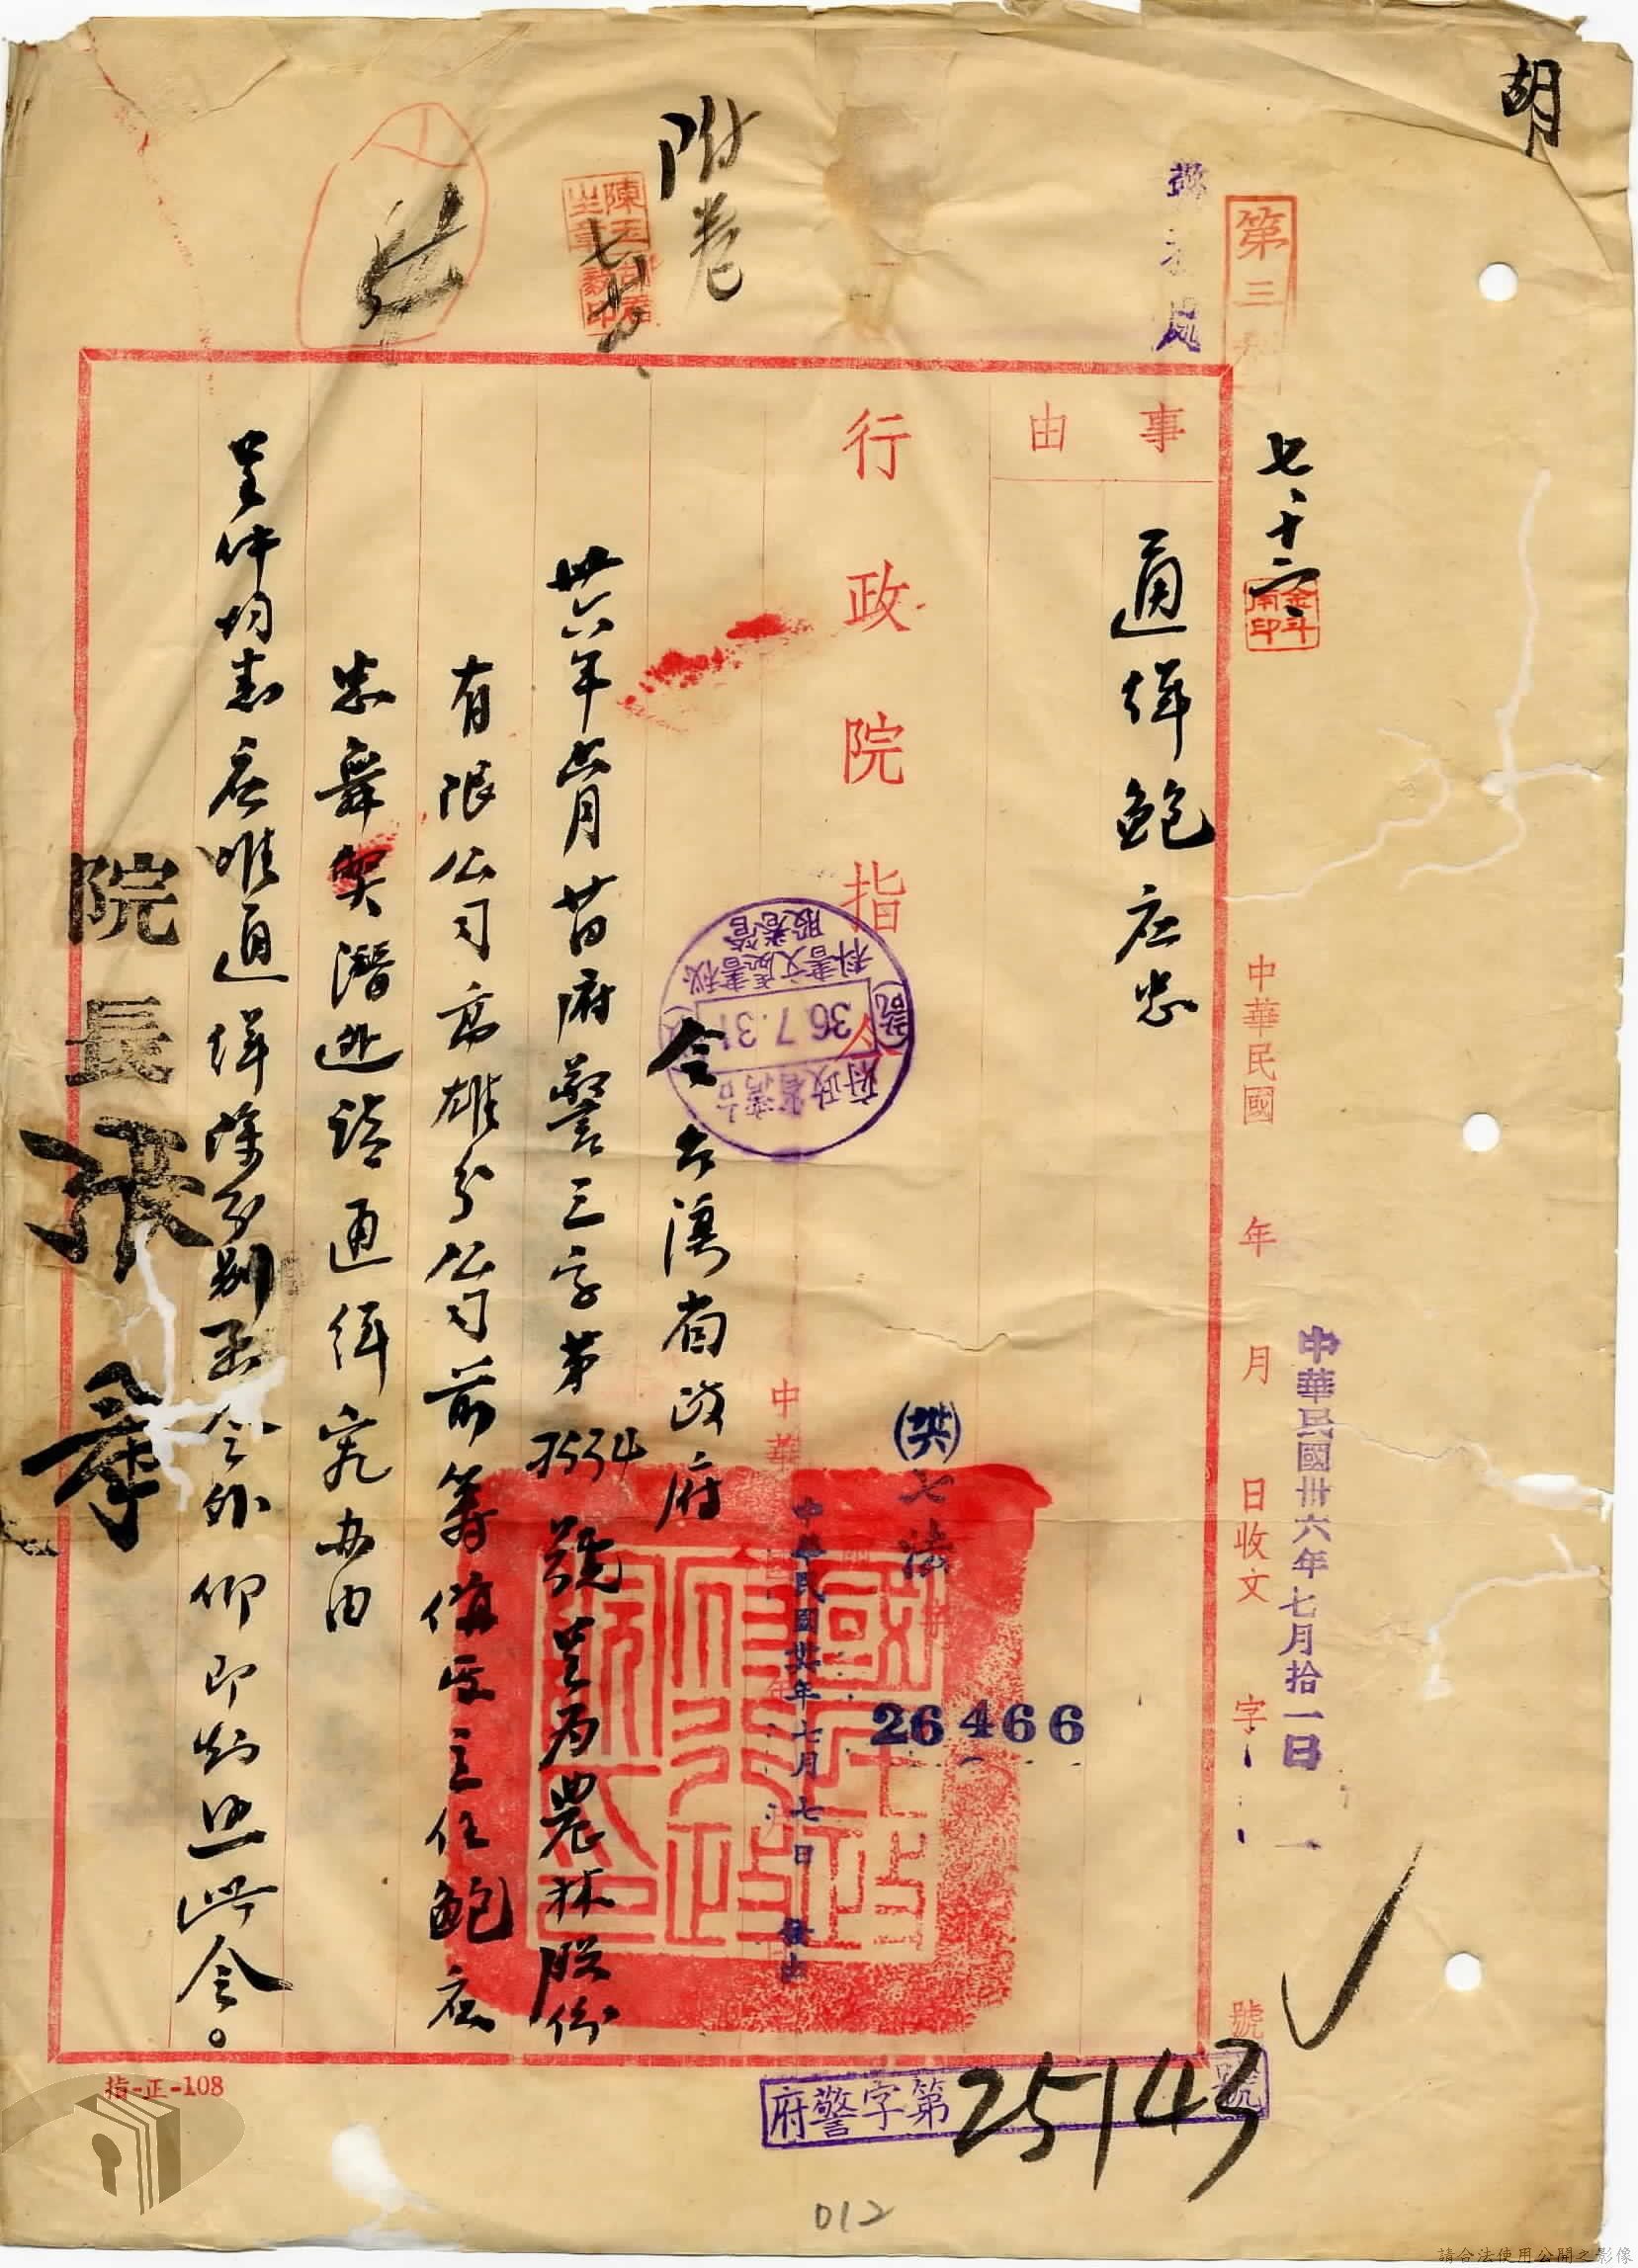 胡
第三科
七、十二、
中華民國 年 月 日收文 字 號
中華民國卅六年七月拾一日
事由
通緝鮑應忠
行政院指令
(卅六)七法
26466
中華民國卅六年七月七日 發出
令 台灣省政府
卅六年六月 日府警三字第 號呈為農林股份
有限公司高雄分公司前籌備處主任鮑應
忠舞弊潛逃請通緝究办由
呈件均悉應准通緝除分别函令外仰即知照此令。
院長張群
附卷
台灣省政府
36.7.31
秘書處文書科
管卷股
府警字第25143號
指-正-108
012
請合法使用公開之影像